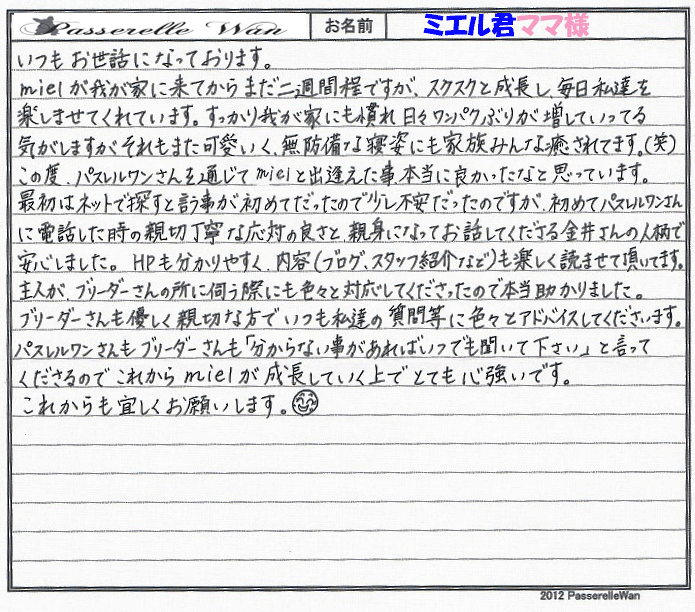 Passerelle Wan お名前 ミエル君ママ様
いつもお世話になっております。
mielが我が家に来てからまだ二週間程ですが、スクスクと成長し、毎日私達を
楽しませてくれています。すっかり我が家にも慣れ日々ワンパクぶりが増していってる
気がしますがそれもまた可愛いく、無防備な寝姿にも家族みんな癒されてます。(笑)
この度、パスレルワンさんを通じてmielと出逢えた事、本当に良かったなと思っています。
最初はネットで探すと言う事が初めてだったので少し不安だったのですが、初めてパスレルワンさん
に電話した時の親切丁寧な応対の良さと、親身になってお話してくださる金井さんの人柄で
安心しました。HPも分かりやすく、内容(ブログ、スタッフ紹介など)も楽しく読ませて頂いてます。
主人が、ブリーダーさんの所に伺う際にも色々と対応してくださったので本当助かりました。
ブリーダーさんも優しく親切な方でいつも私達の質問等に色々とアドバイスしてくださいます。
パスレルワンさんもブリーダーさんも「分からない事があればいつでも聞いて下さい」と言って
くださるのでこれからmielが成長していく上でとても心強いです。
これからも宜しくお願いします。
2012 PasserelleWan